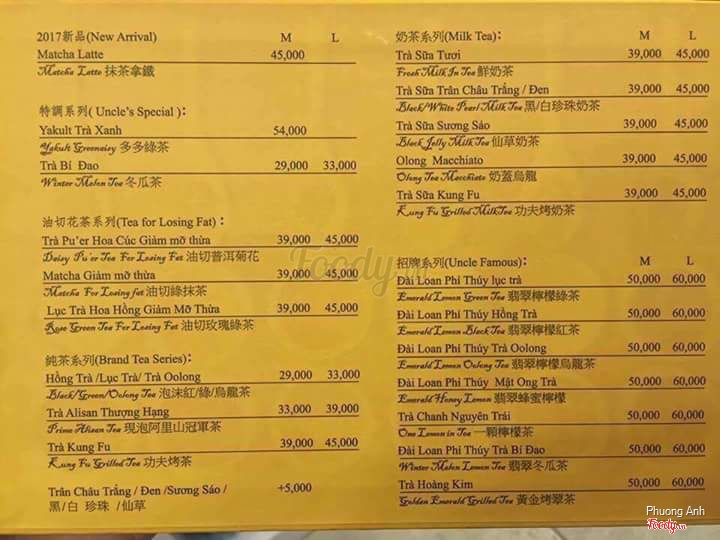 2017新品(New Arrival) M L
Matcha Latte 45,000
Matcha Latte 抹茶拿鐵
特調系列( Uncle's Special ):
Yakult Trà Xanh 54,000
Yakult Greentey 多多綠茶
Trà Bí Đao 29,000 33,000
Winter Melon Tea 冬瓜茶
油切花茶系列(Tea for Losing Fat) :
Trà Pu'er Hoa Cúc Giảm mỡ thừa 39,000 45,000
Daisy Pu'er Tea For Losing Fat 油切普洱菊花
Matcha Giảm mỡ thừa 39,000 45,000
Matcha For Losing fat 油切綠抹茶
Lục Trà Hoa Hồng Giảm Mỡ Thừa 39,000 45,000
Rose Green Tea For Losing Fat 油切玫瑰綠茶
純茶系列(Brand Tea Series):
Hồng Trà /Lục Trà/ Trà Oolong 29,000 33,000
Black/Green/Oolong Tea 泡沫紅/綠/烏龍茶
Trà Alisan Thượng Hạng 33,000 39,000
Prime Alisan Tea 現泡阿里山冠軍茶
Trà Kung Fu 39,000 45,000
Kung Fu Grilled Tea 功夫烤茶
Trân Châu Trắng / Đen /Sương Sáo / +5,000
黑/白 珍珠 /仙草
奶茶系列(Milk Tea): M L
Trà Sữa Tươi 39,000 45,000
Fresh Milk In Tea 鮮奶茶
Trà Sữa Trân Châu Trắng / Đen 39,000 45,000
Black/White Pearl Milk Tea 黑/白珍珠奶茶
Trà Sữa Sương Sáo 39,000 45,000
Black Jelly Milk Tea 仙草奶茶
Olong Macchiato 39,000 45,000
Olong Tea Macchiato 奶蓋烏龍
Trà Sữa Kung Fu 39,000 45,000
Kung Fu Grilled MilkTea 功夫烤奶茶
招牌系列(Uncle Famous): M L
Đài Loan Phỉ Thúy lục trà 50,000 60,000
Emerald Lemon Green Tea 翡翠檸檬綠茶
Đài Loan Phỉ Thúy Hồng Trà 50,000 60,000
Emerald Lemon Black Tea 翡翠檸檬紅茶
Đài Loan Phỉ Thúy Trà Oolong 50,000 60,000
Emerald Lemon Oolong Tea 翡翠檸檬烏龍茶
Đài Loan Phỉ Thúy Mật Ong Trà 50,000 60,000
Emerald Honey Lemon 翡翠蜂蜜檸檬
Trà Chanh Nguyên Trái 50,000 60,000
One Lemon in Tea 一顆檸檬茶
Đài Loan Phỉ Thúy Trà Bí Đao 50,000 60,000
Winter Melon Lemon Tea 翡翠冬瓜茶
Trà Hoàng Kim 50,000 60,000
Golden Emerald Grilled Tea 黃金烤翠茶
Foody.vn
Phuong Anh
Foody.vn